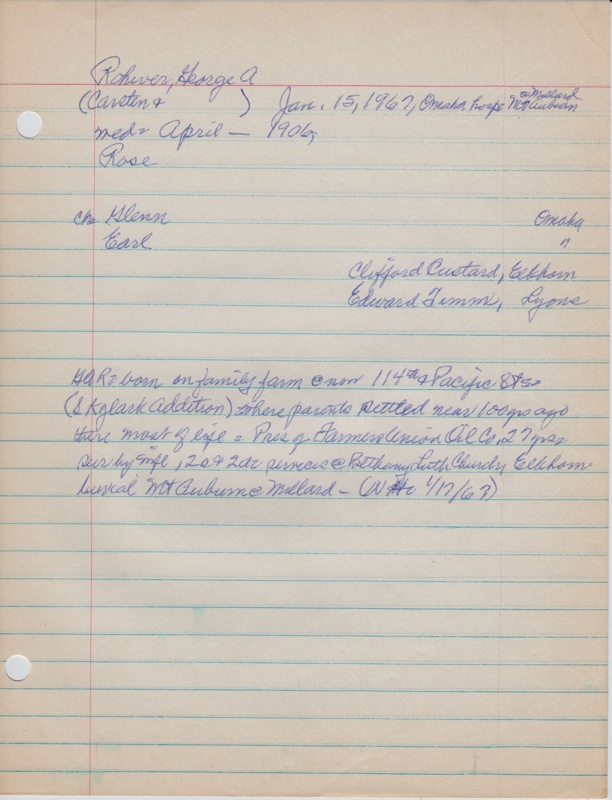 Rohwer, George A
(Carsten & ) Jan. 15, 1967, Omaha hosp @ Millard Mt Auburn
med = April — 1906,
Rose
ch= Glenn Omaha
Earl "
Clifford Custard, Elkhorn
Edward Timm, Lyons
GAR = born on family farm @ now 114th & Pacific Sts =
(Skylark Addition) where parents settled near 100 yrs ago
there most of life = Pres of Farmers Union Oil Co, 27 yrs
sur by wife, 2s & 2dr services @ Bethany Luth Church, Elkhorn
burial Mt Auburn @ Millard — ( 1/17/67)